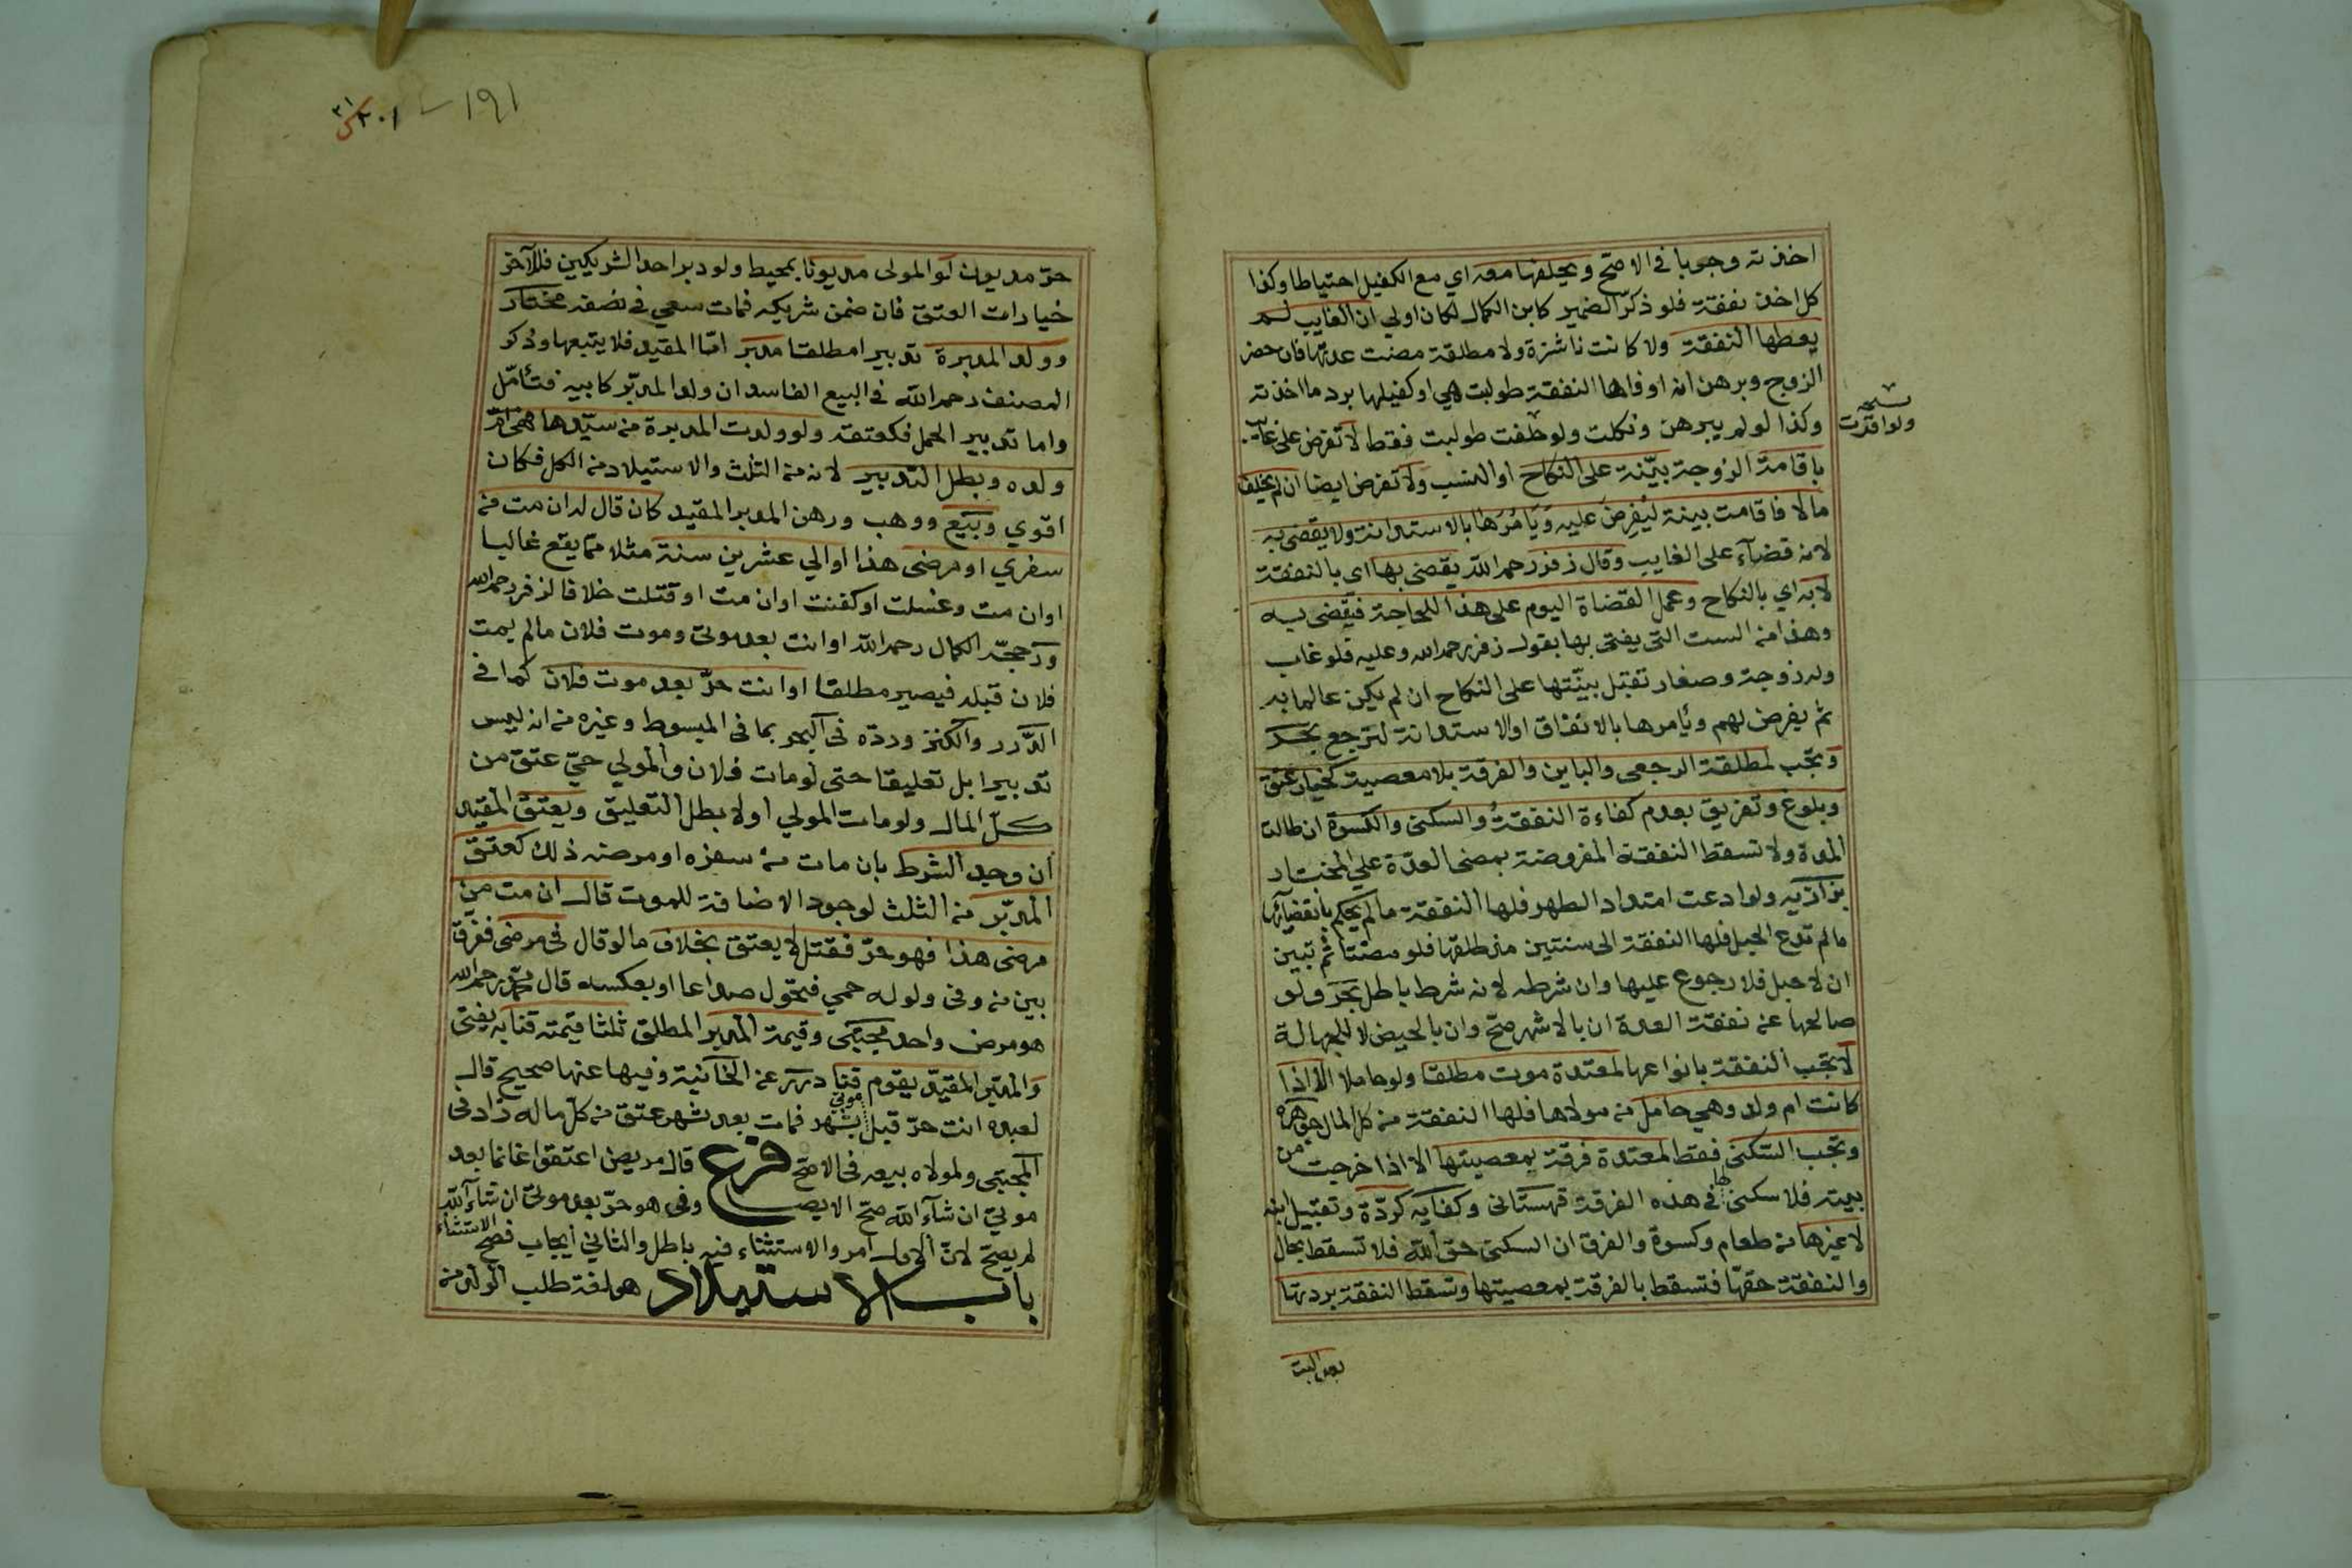 اخذته وجوبا في الاصح ويحلفها معه اي مع الكفيل احتياطا وكذا
كل اخذ نفقة فلو ذكر الضمير كابن الكمال لكان اولي ان الغايب لم
يعطها النفقة ولا كانت ناشزة ولا مطلقة مضت عدتها فان حضر
الزوج وبرهن انه اوفاها النفقة طولبت هي او كفيلها برد ما اخذته
نسخه
ولو اقرت
وكذا لو لم يبرهن ونكلت ولو حلفت طولبت فقط لا تفرض على غايب
باقامة الزوجة بينة على النكاح او النسب ولا تفرض ايضا ان لم يخلف
مالا فاقامت بينة ليفرض عليه ويامرها بالاستدانة ولا يقضى به
لانه قضآء على الغايب وقال زفر رحمه الله يقضى بها اى بالنفقة
لا به اي بالنكاح وعمل القضاة اليوم على هذا للحاجة فيقضى به
وهذا من الست التى يفتى بها بقول زفر رحمه الله وعليه فلو غاب
وله زوجة وصغار تقبل بينتها على النكاح ان لم يكن عالما به
ثم يفرض لهم ويأمرها بالانفاق او الاستدانة لترجع بحر
وتجب لمطلقة الرجعى والباين والفرقة بلا معصية كخيار عتق
وبلوغ وتفريق بعدم كفاءة النفقة والسكنى والكسوة ان طالت
المدة ولا تسقط النفقة المفروضة بمضى العدة علي المختار
بزازيه ولو ادعت امتداد الطهر فلها النفقة ما لم يحكم بانقضآئها
ما لم تدع الحبل فلها النفقة الى سنتين منذ طلقها فلو مضتا ثم تبين
ان لا حبل فلا رجوع عليها وان شرطه لانه شرط باطل بحر ولو
صالحها عن نفقة العدة ان بالاشهر صح وان بالحيض لا للجهالة
لا تجب النفقة بانواعها لمعتدة موت مطلقا ولو حاملا الا اذا
كانت ام ولد وهي حامل من مولاها فلها النفقة من كل المال جوهره
وتجب السكنى فقط لمعتدة فرقة بمعصيتها الا اذا خرجت من
بيته فلا سكنى لها في هذه الفرقة قهستانى وكفايه كردة وتقبيل ابنه
لا غيرها من طعام وكسوة والفرق ان السكنى حق الله فلا تسقط بحال
والنفقة حقها فتسقط بالفرقة بمعصيتها وتسقط النفقة بردتها
بعد البت
١٩١
حر مديون لو المولى مديونا بمحيط ولو دبر احد الشريكين فللآخر
خيارات العتق فان ضمن شريكه فمات سعي في نصفه مختار
وولد المدبرة تدبيرا مطلقا مدبر امّا المقيد فلا يتبعها وذكر
المصنف رحمه الله في البيع الفاسد ان ولد المدبر كابيه فتأمل
واما تدبير الحمل فكعتقه ولو ولدت المدبرة من سيدها فهي ام
ولده وبطل التدبير لانه من الثلث والاستيلاد من الكل فكان
اقوي وبيع ووهب ورهن المدبر المقيد كان قال له ان مت من
سفري او مرضى هذا او الي عشرين سنة مثلا مما يقع غالبا
او ان مت وغسلت او كفنت او ان مت او قتلت خلافا لزفر رحمه الله
ورجحه الكمال رحمه الله او انت بعد موتى وموت فلان ما لم يمت
فلان قبله فيصير مطلقا او انت حر بعد موت فلان كما في
الدرر والكنز ورده فى البحر بما فى المبسوط وغيره من انه ليس
تدبيرا بل تعليقا حتى لو مات فلان والمولي حي عتق من
كل المال ولو مات المولي اولا بطل التعليق ويعتق المقيد
ان وجد الشرط بان مات من سفره او مرضه ذلك كعتق
المدبر من الثلث لوجود الاضافة للموت قال ان مت من
مرضى هذا فهو حر فقتل لا يعتق بخلاف ما لو قال فى مرضى ففرق
بين من وفى ولو له حمي فتحول صداعا او بعكسه قال محمد رحمه الله
هو مرض واحد مجتبى وقيمة المدبر المطلق ثلثا قيمته قنا به يفتى
والمدبر المقيد يقوم قنا درر عن الخانية وفيها عنها صحيح قال
لعبده انت حر قبل موتي بشهر فمات بعد شهر عتق من كل ماله زاد فى
المجتبى ولمولاه بيعه فى الاصح فرع قال مريض اعتقوا غانما بعد
موتي ان شآء الله صح الايصا وفى هو حر بعد موتي ان شاء الله
لم يصح لان الاول امر والاستثناء فيه باطل والثاني ايجاب فصح الاستثناء
باب الاستيلاد هو لغة طلب الولد من